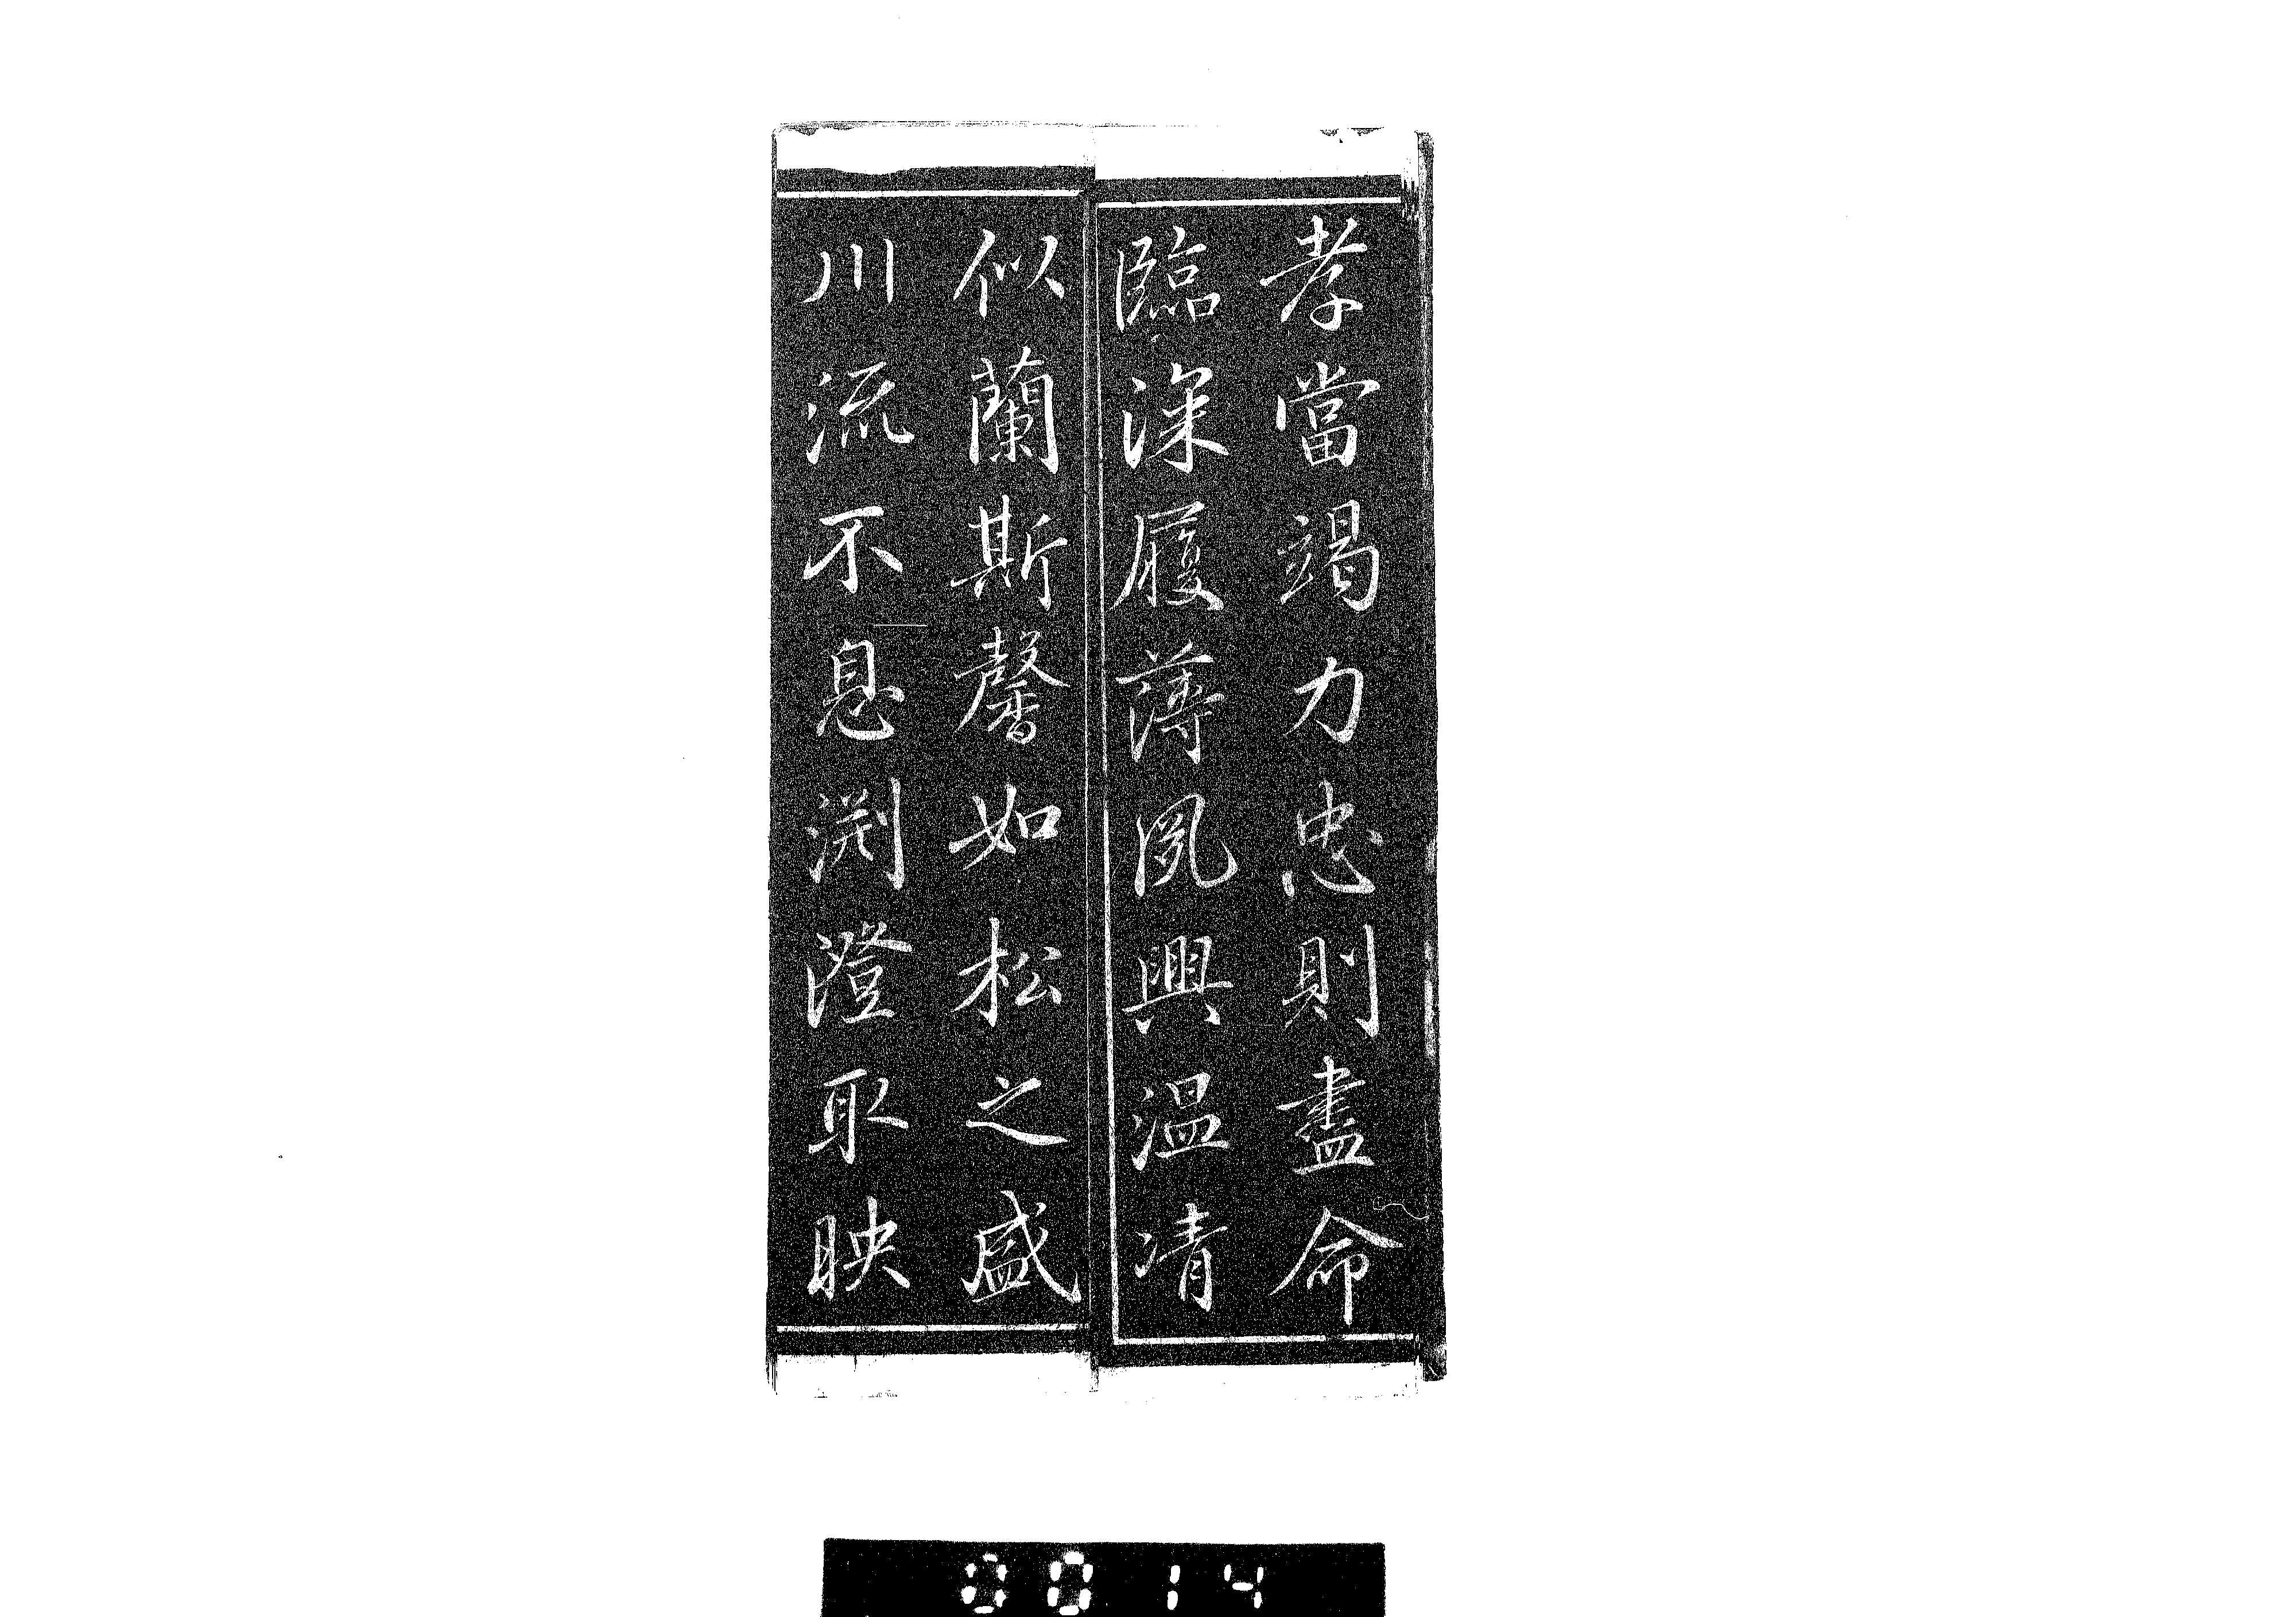 孝當竭力忠則盡命
臨深履薄夙興温凊
似蘭斯馨如松之盛
川流不息渕澄取映
0014